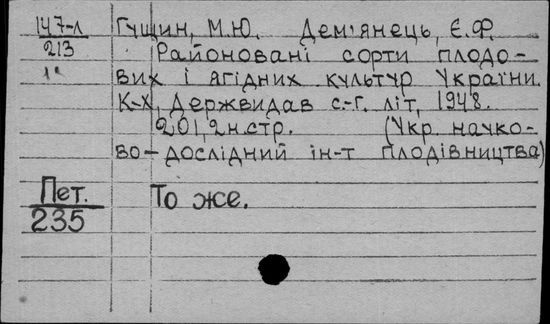 147-л Гущин, М.Ю. Дем'янець, Є.Ф.
213 Районовані сорти плодо-
1" вих і ягідних культур України.
К-Х, Держвидав с.-г. літ, 1948.
201,2н.стр. (Укр. науко-
во-дослідний ін-т плодівництва)
Пет. То же.
235